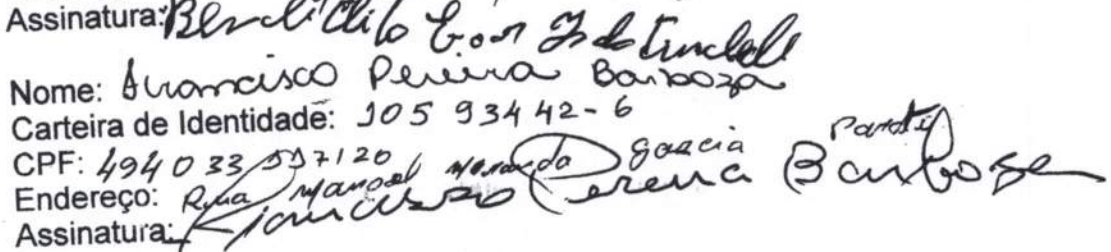 Assinatura:
Nome: Francisco Pereira Barboza
Carteira de Identidade: 105 934 42-6
CPF: 494 033 597/20
Endereço: Rua Manoel Miranda Garcia Parati
Assinatura: Francisco Pereira Barboza